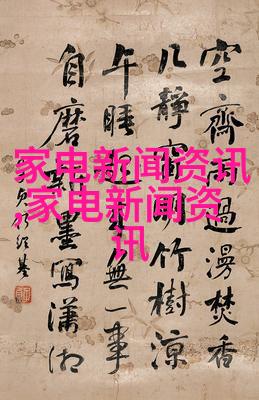 家电新闻资讯
家电新闻资
讯
空齋雨過漫焚香
几靜窗明竹樹涼
午睡無一事
自磨新墨寫瀟湘